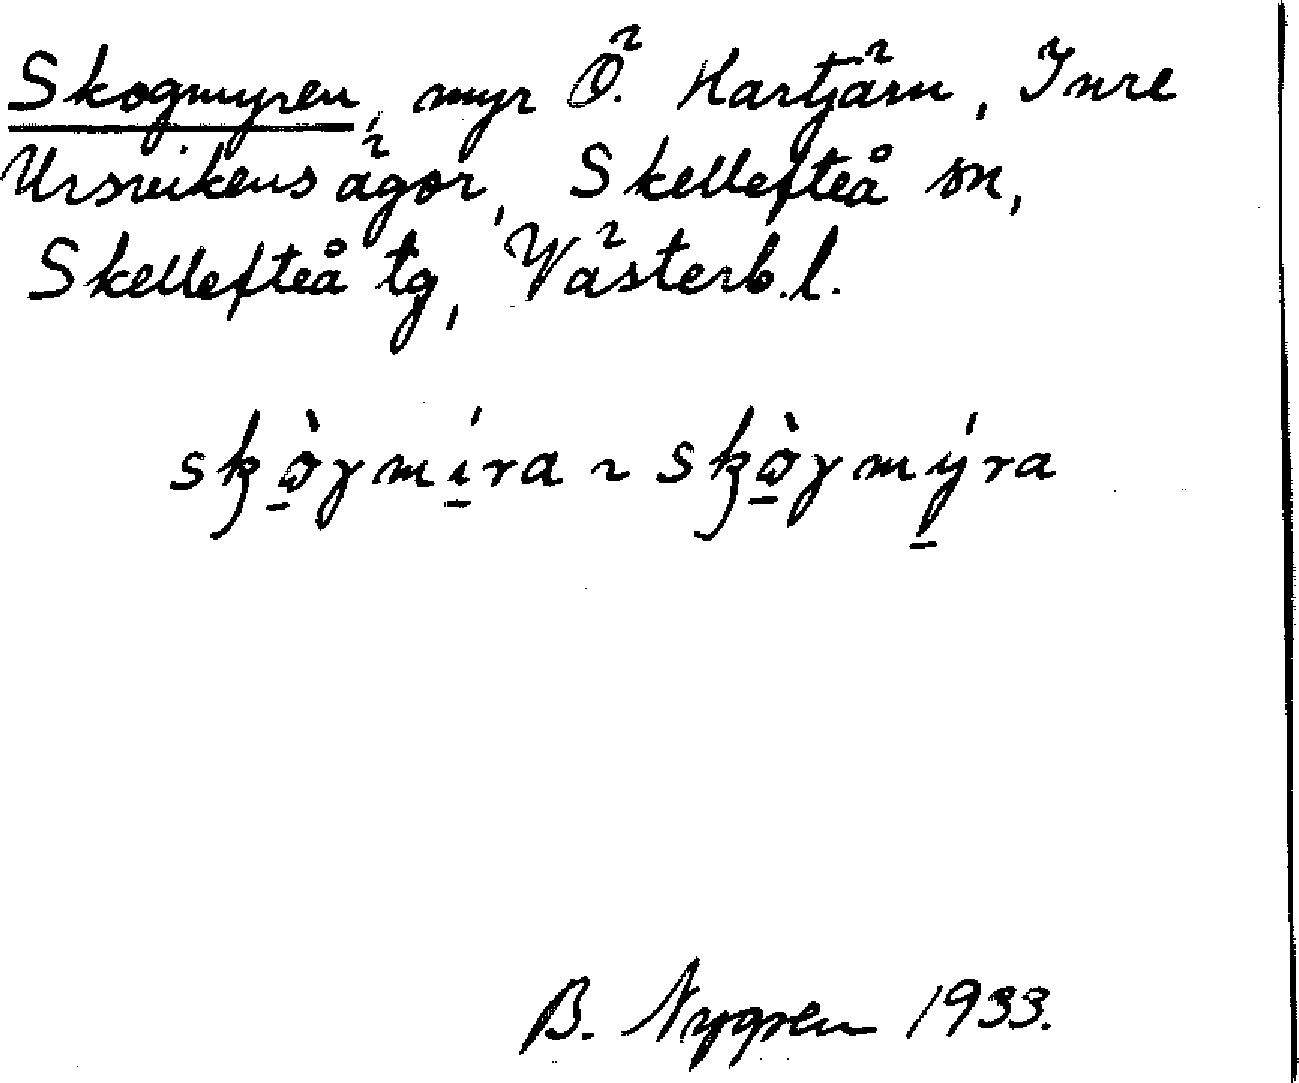 Skogmyren, myr Ö. Hartjärn, Inre
Ursvikens ägor, Skellefteå sn,
Skellefteå tg, Västerb.l.
skò̠ɣmí̠ra ~ skò̠ɣmý̠ra
B. Nygren 1933.